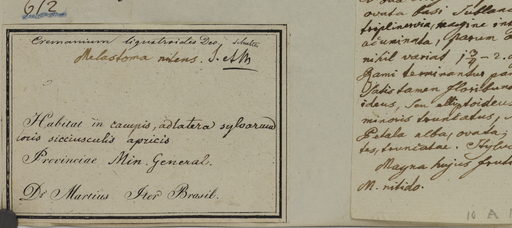 612
Cremanium ligustroides Dec. Schultes
Melastoma nitens. S. et M
Habitat in campis, ad latera sylvarum
locis sicciusculis apricis
Provinciae Min. General.
Dr Martius Iter Brasil.
ovata basi
triplinervia, margine int
acuminata, parum
nihil variat 1 3/4 - 2.
Rami terminantur pan
Satis tamen floribund
ideus, seu ellyptoideus
minoris truncatus,
Petala alba, ovata,
tes, truncatae. Stylus
Magna hujus frut
M. nitido.
10 A